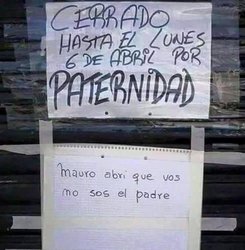 CERRADO
HASTA EL LUNES
6 DE ABRIL POR
PATERNIDAD
Mauro abri que vos
no sos el padre